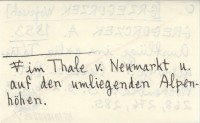 ∀ im Thale v. Neumarkt u.
auf den umliegenden Alpen-
höhen.